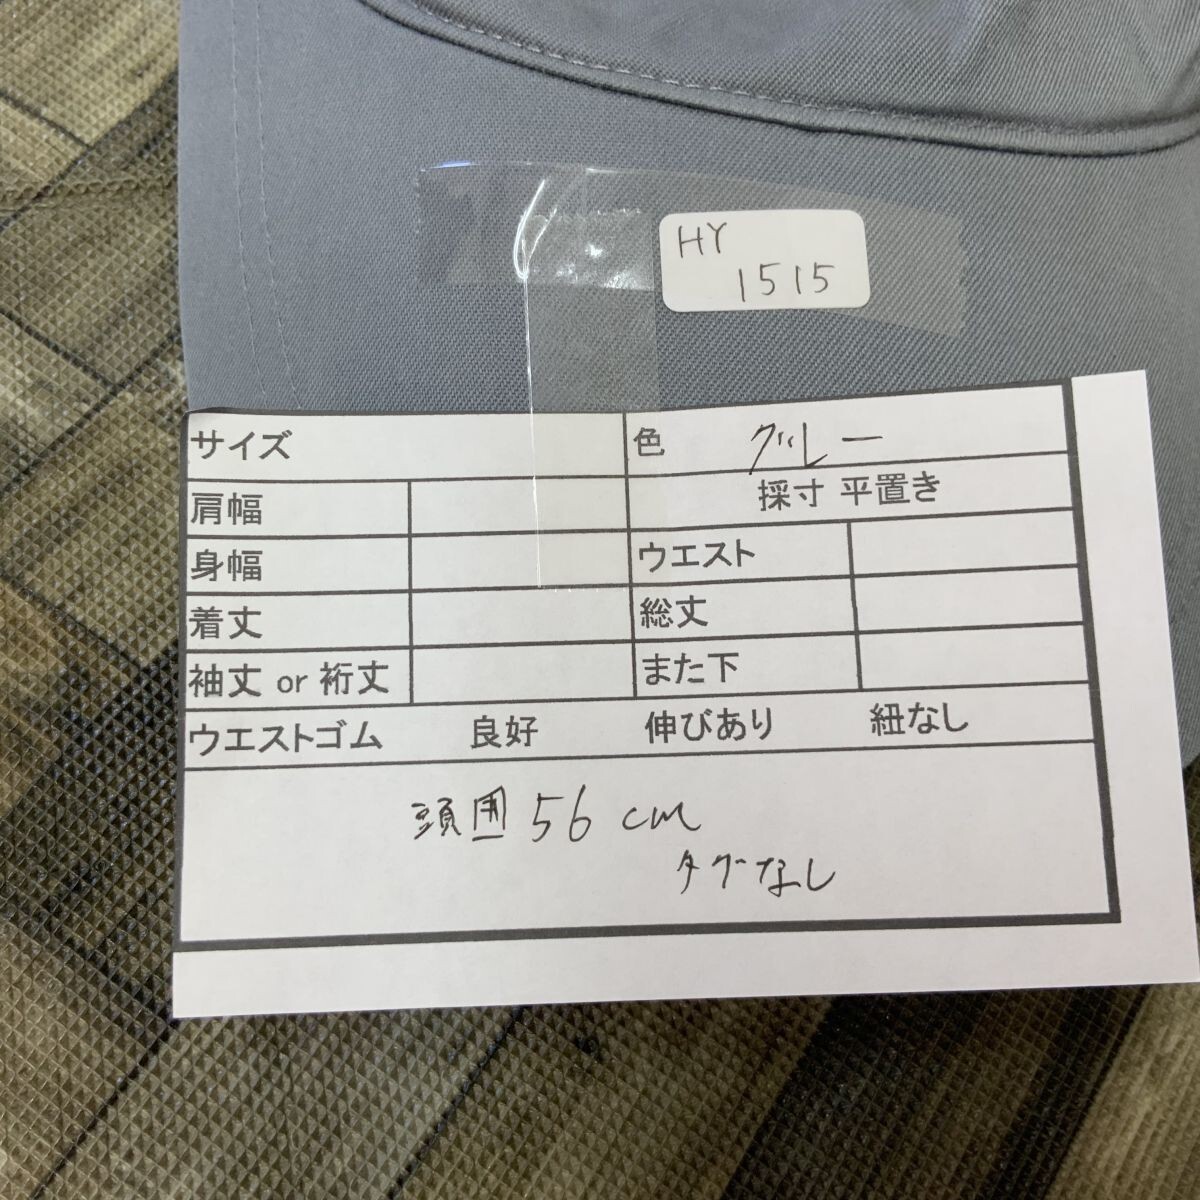 HY
1515
サイズ 色 グレー
肩幅 採寸 平置き
身幅 ウエスト
着丈 総丈
袖丈 or 裄丈 また下
ウエストゴム 良好 伸びあり 紐なし
頭囲 56 cm
タグなし